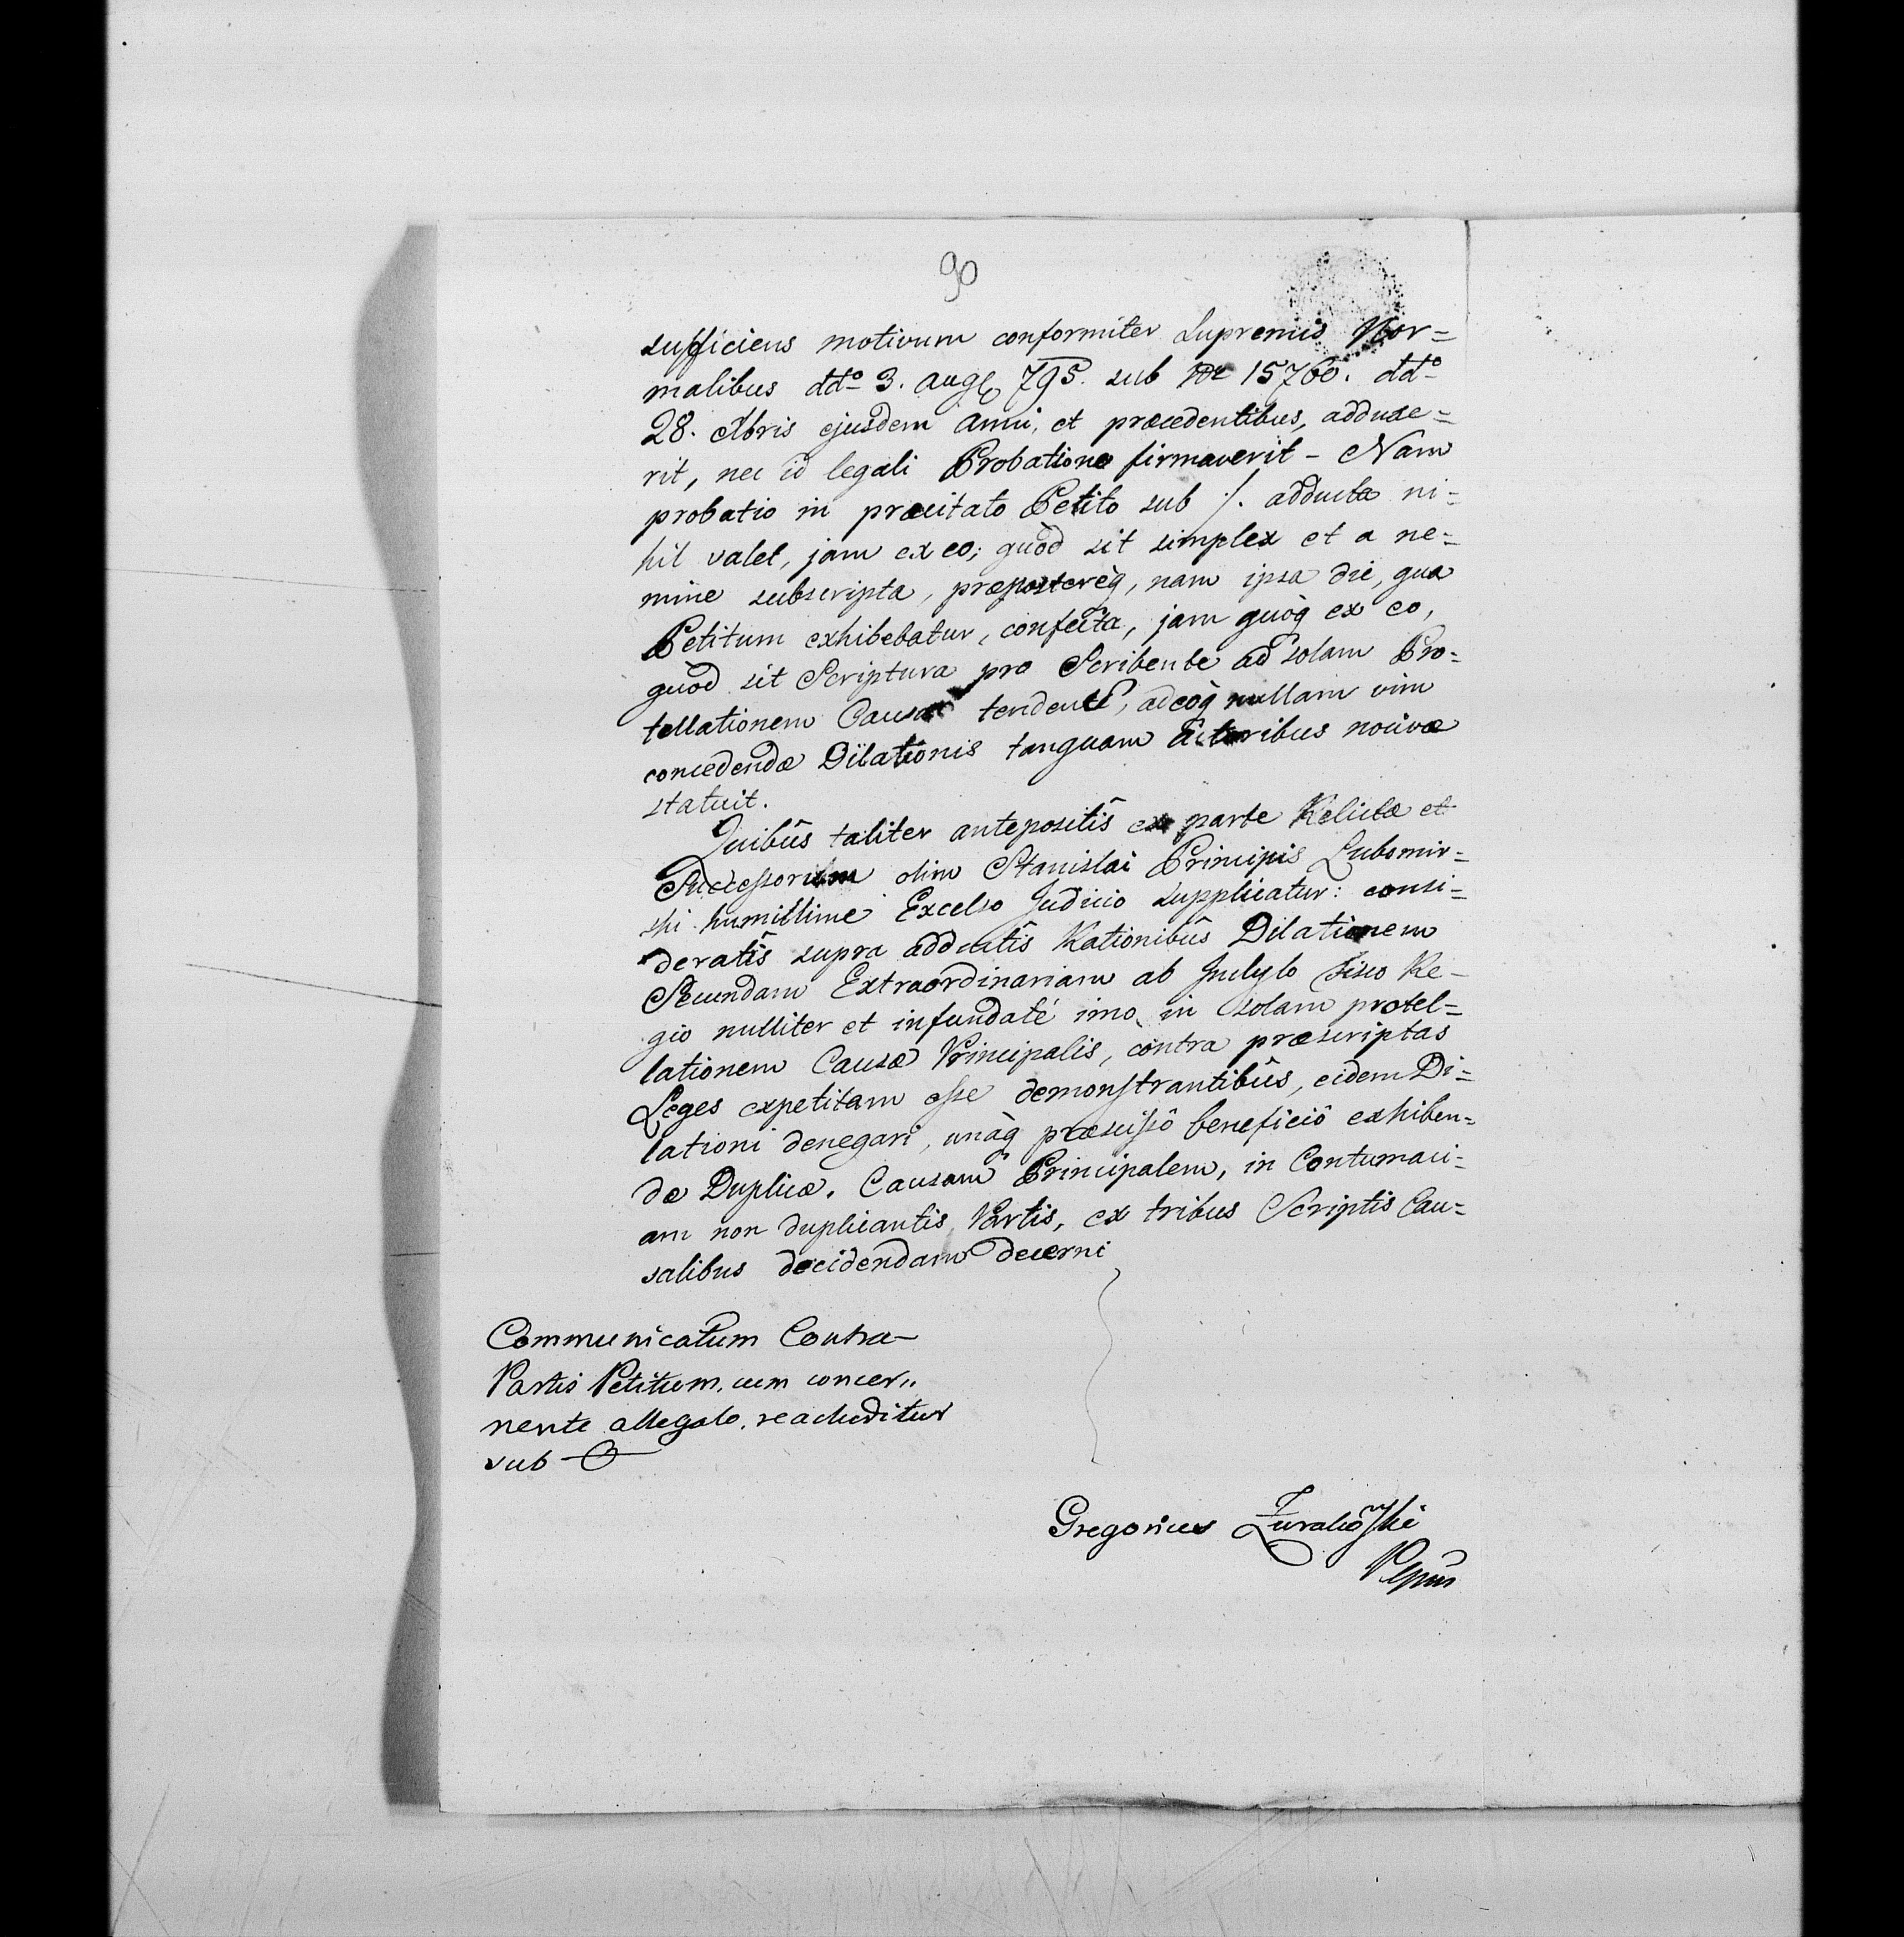 90
sufficiens motivum conformiter Supremis Nor=
malibus ddº 3. Aug 795. sub Nr 15760. ddº
28. Xbris ejusdem Anni, et præcedentibus, adduxe=
rit, nec id legali Probatione firmaverit – Nam
probatio in præcitato Petito sub ./. adducta ni=
hil valet, jam ex eo; quòd sit simplex et a ne=
mine subscripta, præpostereq, nam ipsa die, qua
Petitum exhibebatur, confecta, jam quòq ex eo,
quòd sit Scriptura pro Scribente ad solam Pro=
tellationem Causæ tendente, adeòq nullam vim
concedendæ Dilationis tanquam Actoribus nocivæ
statuit.
Quibûs taliter antepositîs ex parte Relictæ et
Successorum olim Stanislai Principis Lubomir=
ski humillime Excelso Judicio supplicatur: consi=
deratîs supra adductîs Rationibûs Dilationem
Secundam Extraordinariam ab Inclyto Fisco Re=
gio nulliter et infundaté imo in solam protel=
lationem Causæ Principalis, contra præscriptas
Leges expetitam esse demonstrantibûs, eidem Di=
lationi denegari, unàq præscissô beneficiô exhiben=
dæ Duplicæ. Causam Principalem, in Contumaci=
am non duplicantis Partis, ex tribus Scriptis Cau=
salibus decidendam decerni
Communicatum Contra-
Partis Petitum, cum concer„
nente allegato, reacluditur
sub
Gregorius